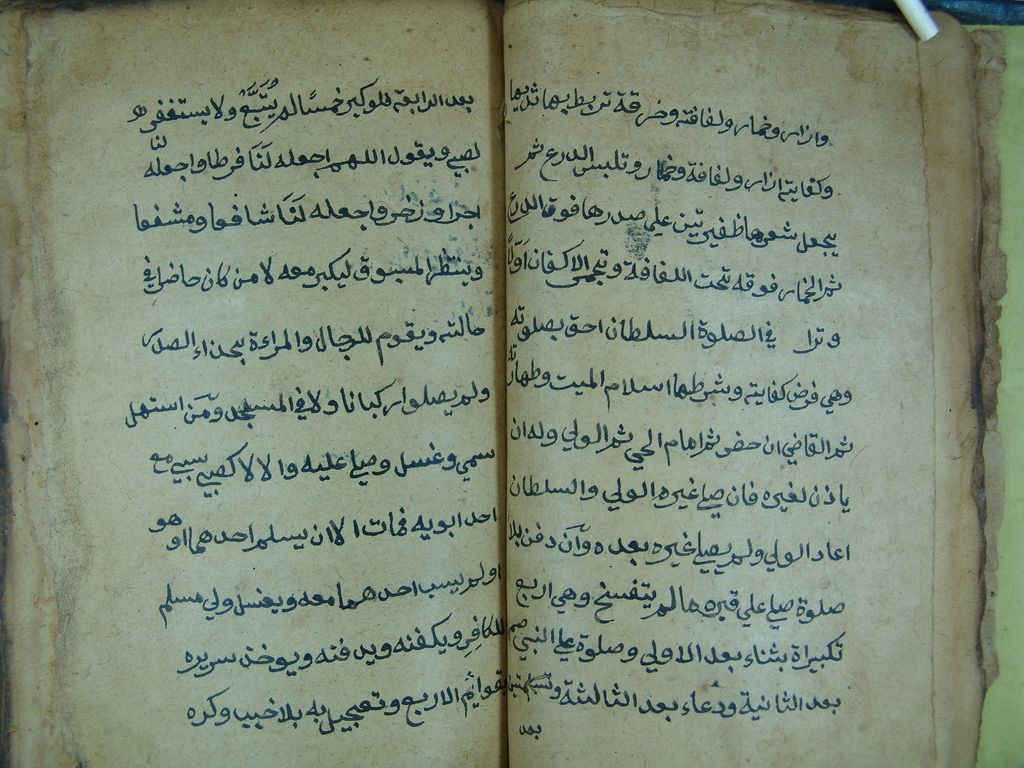 وازار وخمار ولفافة وخرقة تربط بها ثديها
وكفايته ازار ولفافة وخمار وتلبس الدرع ثم
يجعل شعرها ظفيرتين علي صدرها فوق الدرع
ثم الخمار فوقه تحت اللفافة وتجمر الاكفان اوّلًا
وترا في الصلوة السلطان احق بصلوته
وهي فرض كفايته وشرطها اسلام الميت وطهارته
ثم القاضي ان حضر ثم امام الحي ثم الولي وله ان
ياذن لغيره فان صلي غيره الولي والسلطان
اعاد الولي ولم يصلي غيره بعده وآن دفن بلا
صلوة صلي علي قبره ما لم يتفسخ وهي اربع
تكبيراة بثناء بعد الاولي وصلوة علي النبي صم
بعد الثانية ودعاء بعد الثالثة وتسليمتين
بعد
بعد الرابعة فلو كبر خمسًا لم يُتَّبَعْ ولا يستغفر
لصبي ويقول اللهم اجعله لَنَا فرطا واجعله لنا
اجرا وزخرا واجعله لَنَا شافعا ومشفعا
وينتظر المسبوق ليكبر معه لا من كان حاضرا في
حالته ويقوم للرجال والمراءة بحذاء الصدر
ولم يصلوا ركبانا ولا في المسجد ومَن استهل
سمي وغسل وصلي عليه والا لا كصبي سبي مع
احد ابويه فمات الا ان يسلم احدهما او هو
او لم يسب احدهما معه ويغسل ولي مسلم
للكافِر ويكفنه ويدفنه ويوخذ سريره
بقوائم الاربع وتعجيل به بلا خبب وكره